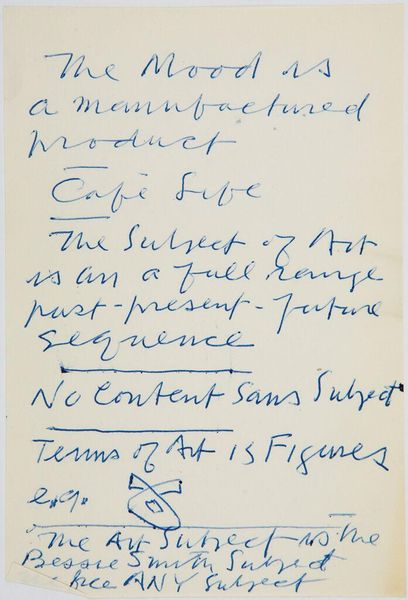 The Mood is
a manufactured
product
Café Life
The Subject of Art
is in a full range
past-present-future
sequence
No Content Sans Subject
Terms of Art is Figures
e.g.
The Art Subject is The
Bessie Smith Subject
ANY Subject